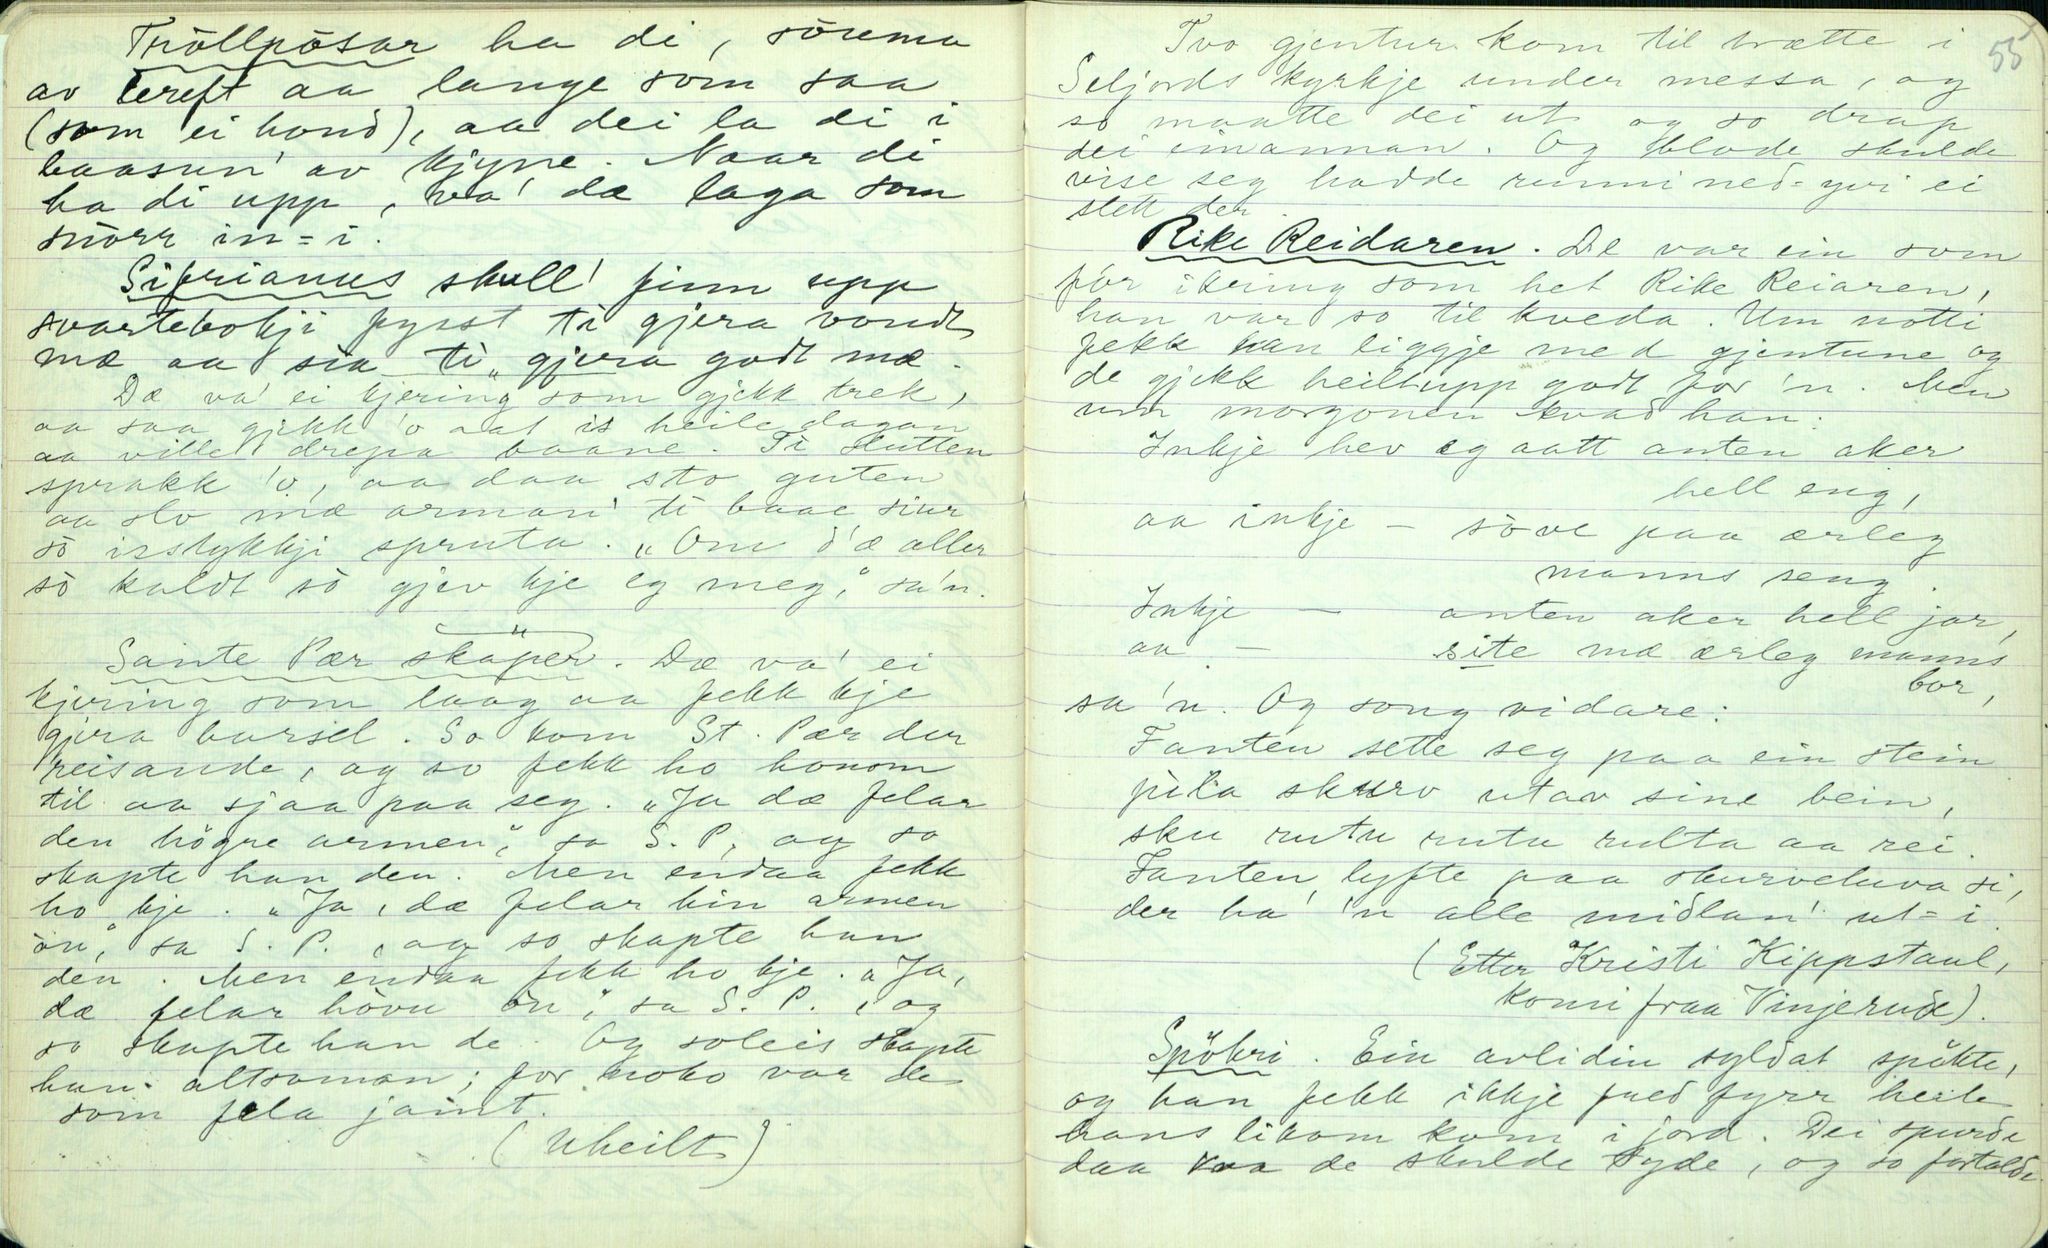 Tröllpösar ha di, söuma
av lereft aa lange som saa
(som ei hond), aa dei la di i
baasun' av kjyne. Naar di
ha di upp, va' dæ laga som
snörr in=i.
Siprianus skull' finn upp
svartebokji fysst ti gjera vondt
mæ aa sia ti gjera godt mæ.
Dæ va' ei kjering som gjekk trek,
aa saa gjekk 'o aat is heile dagan
aa ville drepa baane. Ti slutten
sprakk 'o, aa daa sto guten
aa slo mæ arman' ti baae siur
sö isstykkji spruta. „Om d'æ aller
sö kaldt sö gjev kje eg meg," sa'n.
Sante Pær skaper. Dæ va' ei
kjering som laag aa fekk kje
gjera barsel. So kom St. Pær der
reisande, og so fekk ho honom
til aa sjaa paa seg. „Ja dæ felar
den högre armen," sa S. P. og so
skapte han den. Men endaa fekk
ho kje. „Ja, dæ felar hin armen
ön," sa S. P., og so skapte han
den. Men endaa fekk ho kje. „Ja,
dæ felar hövu ön," sa S. P., og
so skapte han de. Og soleis skapte
han altsaman; for noko var de
som fela jamt.
(Uheilt)
55
Tvo gjentur kom til trætte i
Seljords kyrkje under messa, og
so maatte dei ut og so drap
dei einannan. Og blode skulde
vise seg hadde runni ned-yvi ei
stett der.
Rike Reidaren. De var ein som
fór ikring som het Rike Reiaren,
han var so til kveda. Um notti
fekk han liggje med gjentune og
de gjekk heiltupp godt for 'n. Men
um morgonen kvad han:
Inkje hev eg aatt anten aker
hell eng,
aa inkje – söve paa ærleg
manns seng.
Inkje – anten aker hell jor,
aa – site mæ ærleg manns
bor,
sa 'n. Og song vidare:
Fanten sette seg paa ein stein
pila skurv utav sine bein,
sku rutu rutu rulta aa rei.
Fanten lyfte paa skurveluva si,
der ha' 'n alle midlan' ut=i.
(Etter Kristi Kippstaul,
komi fraa Vinjerude).
Spökri. Ein avlidin syldat spökte,
og han fekk ikkje fred fyrr heile
hans likam kom i jord. Dei spurde
daa kva de skulde tyde, og so fortalde